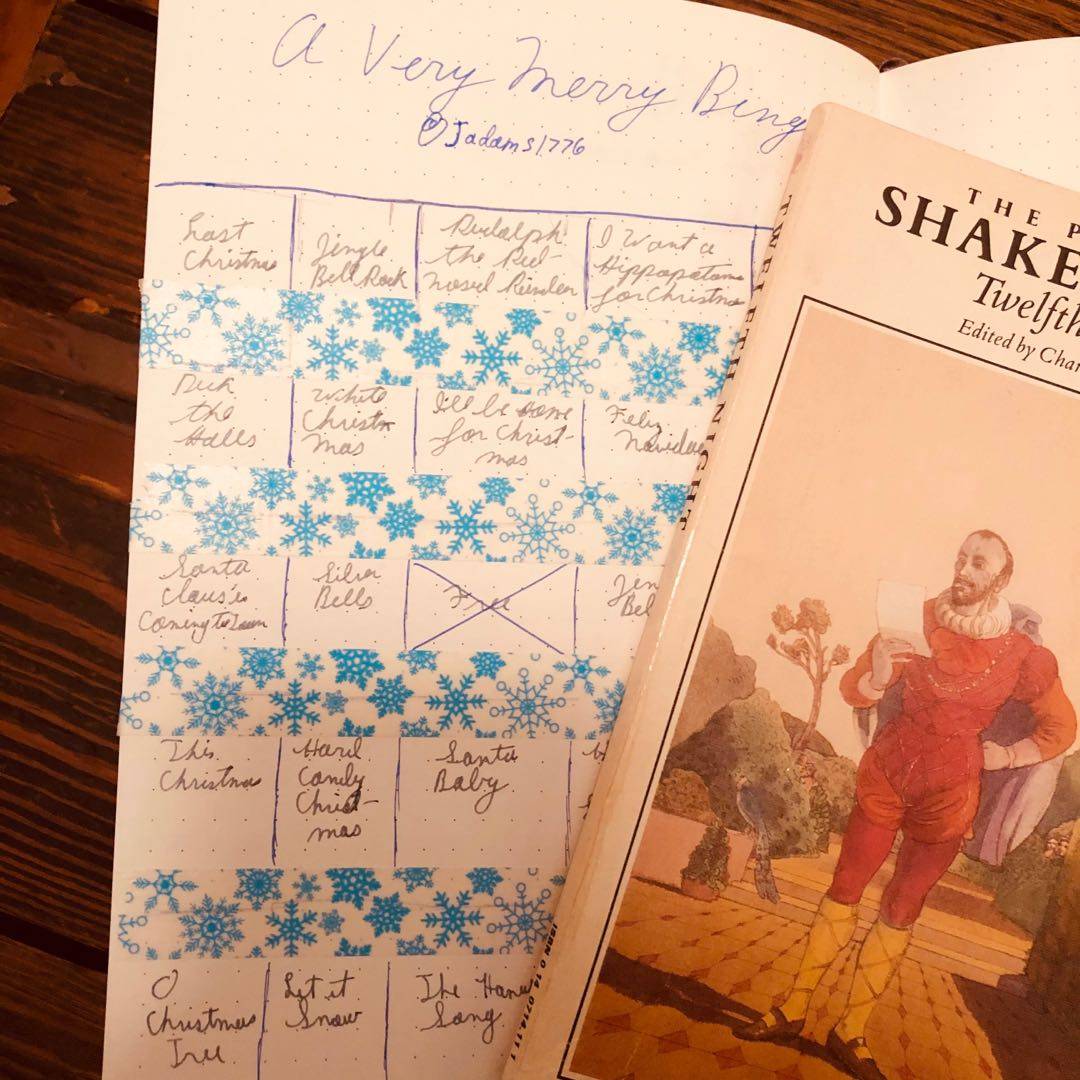 A Very Merry Bing
@Jadams1776
Last
Christmas
Jingle
Bell Rock
Rudolph
the Red-
nosed Reindeer
I Want a
Hippopotamus
for Christmas
Deck
the
Halls
White
Christ-
mas
I'll be home
for Christ-
mas
Feliz
Navidad
Santa
Claus is
Coming to Town
Silver
Bells
Free
Jin
Bel
This
Christmas
Hard
Candy
Christ-
mas
Santa
Baby
O
Christmas
Tree
Let it
Snow
The Hanu
Song
TWELFTH NIGHT
ISBN 0 14 0714.11 1
THE P
SHAKE
Twelfth
Edited by Char